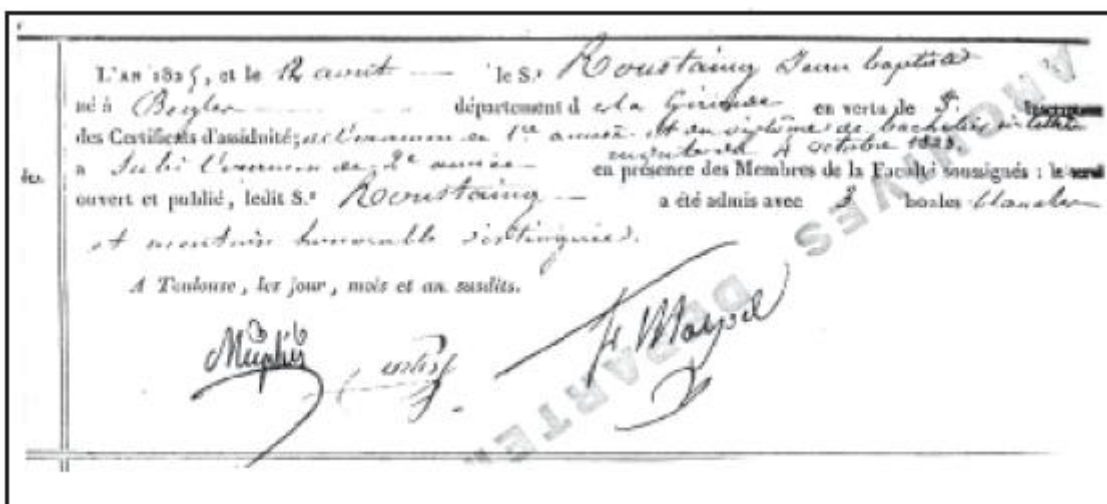 L'AN 1825, et le 12 aout — le S.r Roustaing Jean baptiste
né à Begles département d e la Gironde en vertu de 5. Inscriptions
des Certificats d'assiduité; de l'examen de 1re année et du diplôme de bachelier ès lettres
en date du 4 octobre 1823.
a Subi l'examen de 2e année en présence des Membres de la Faculté soussignés : le scrutin
ouvert et publié, ledit S.r Roustaing — a été admis avec 3 boules blanches
et mention honorable distinguée.
A Toulouse, les jour, mois et an susdits.
ARCHIVES DEPARTEM